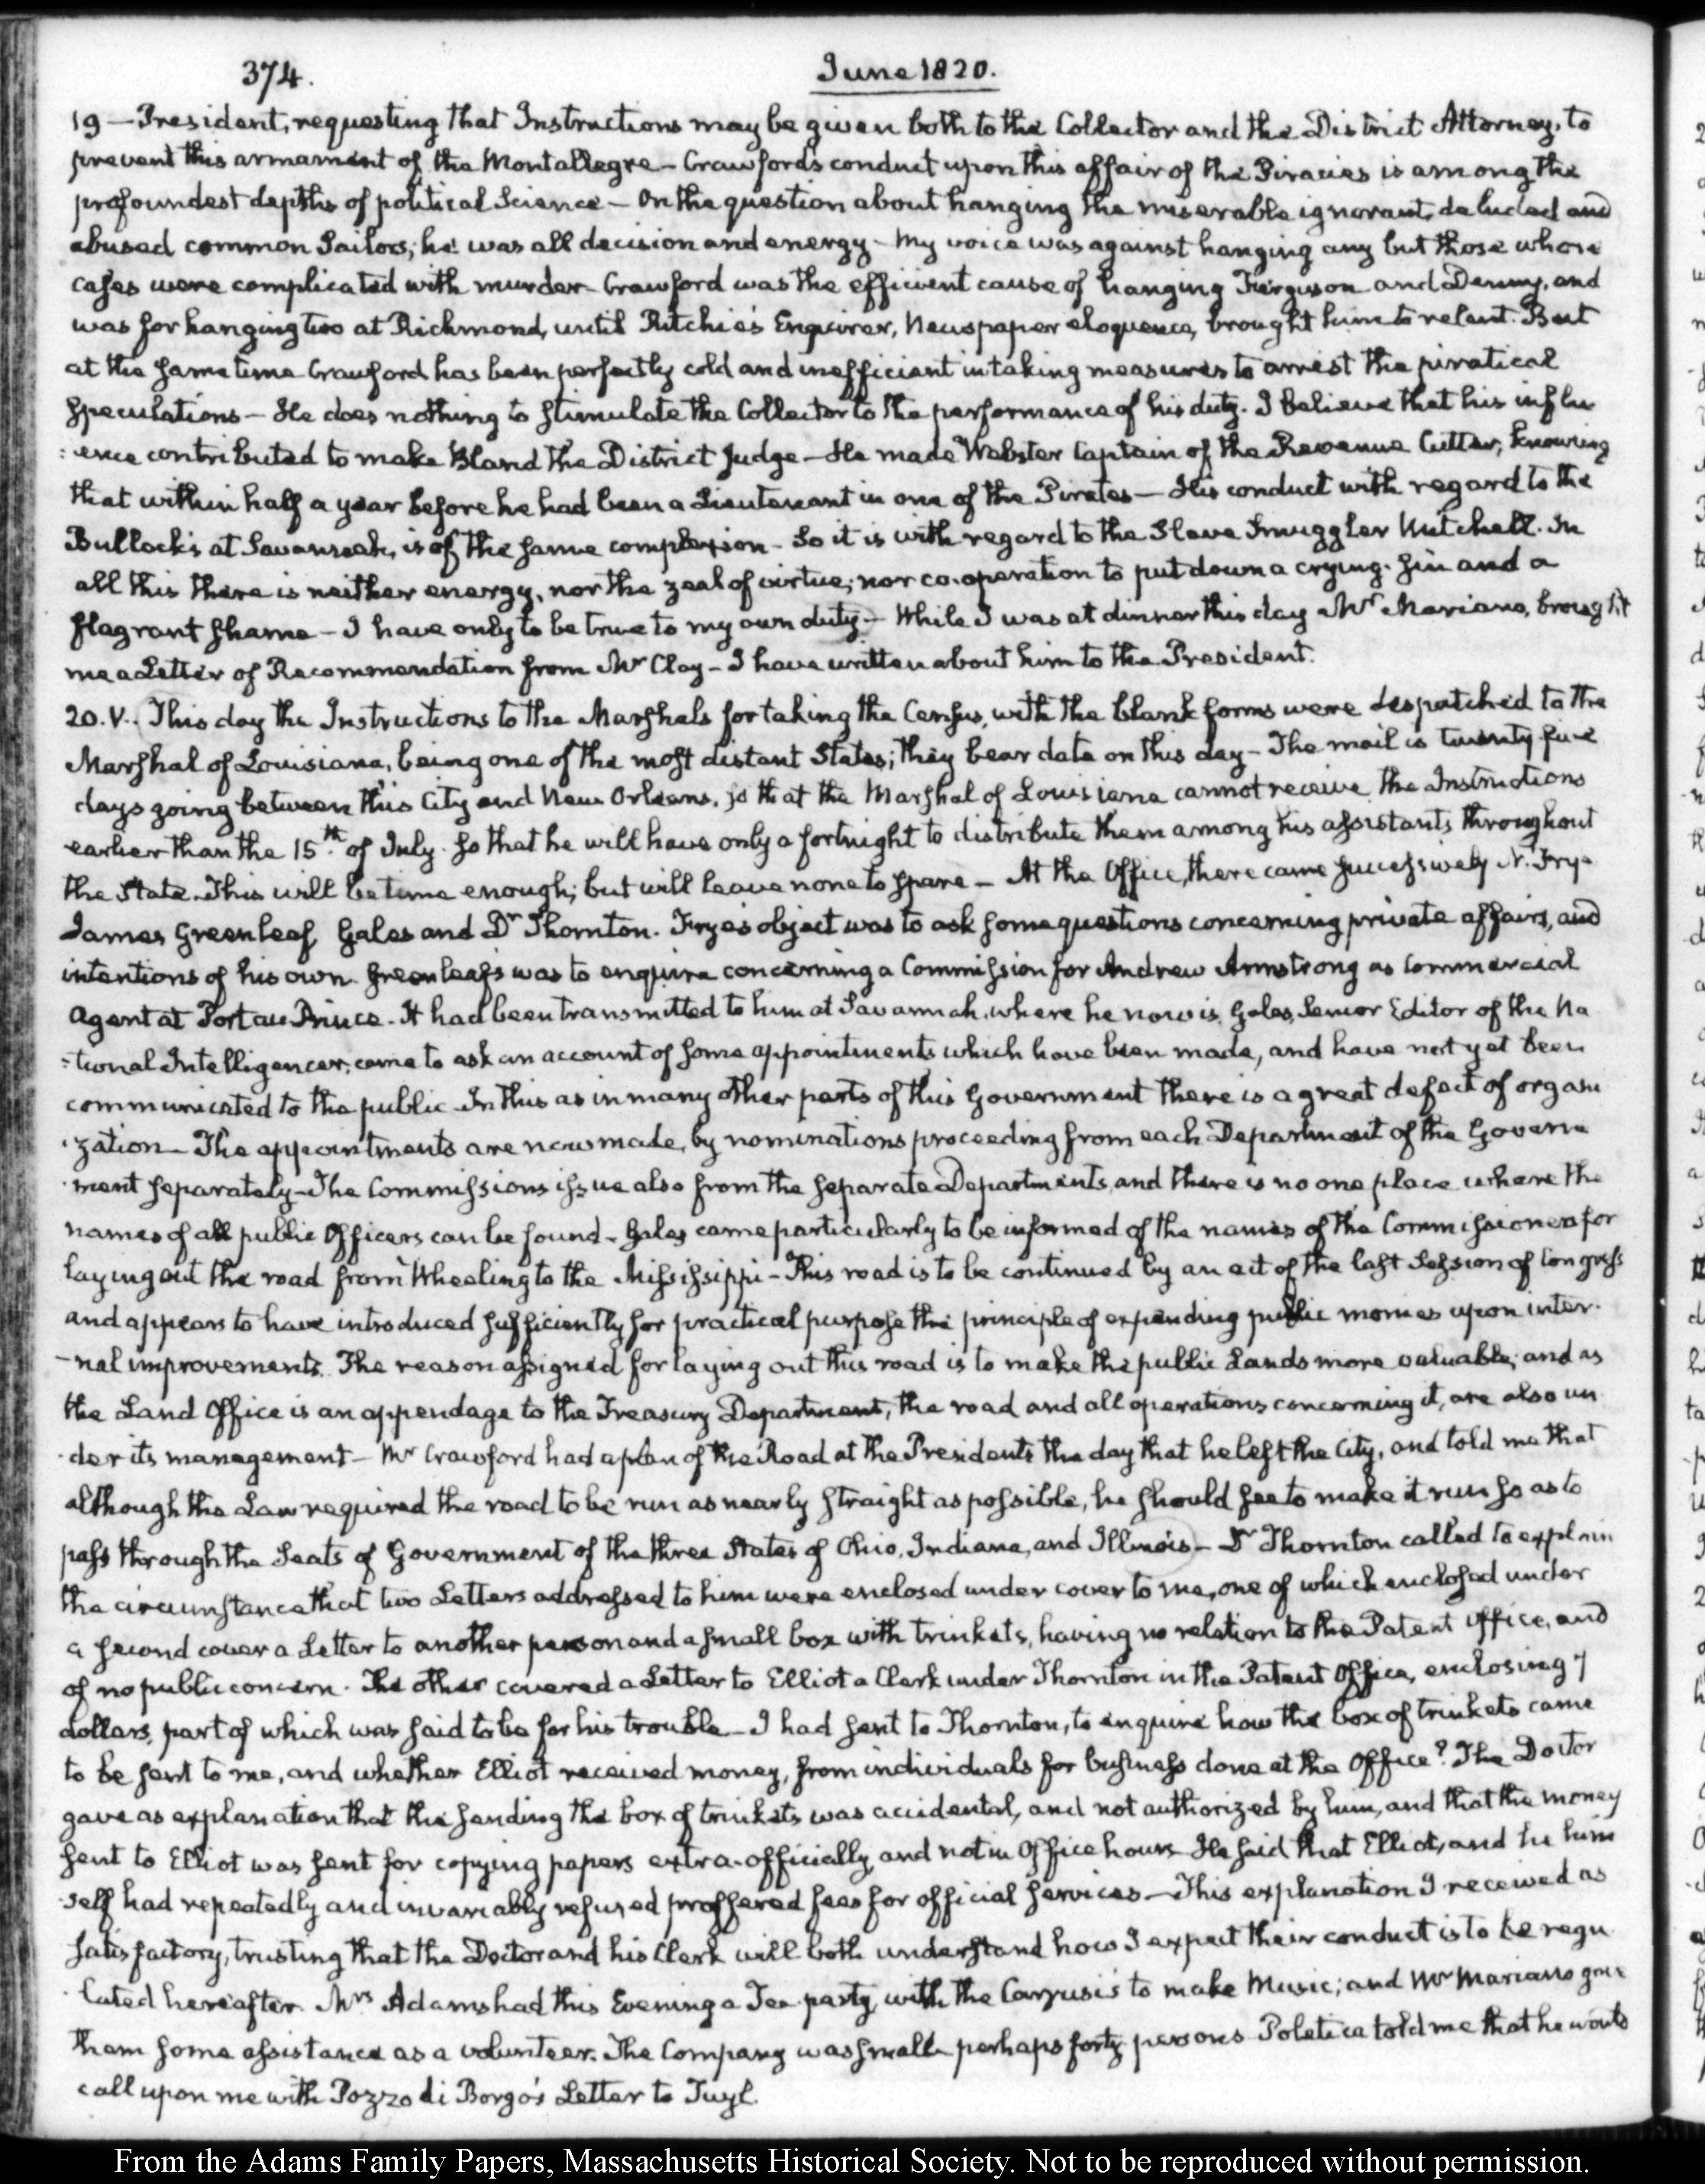 374.
June 1820.
19 — President, requesting that Instructions may be given both to the Collector and the District Attorney, to
prevent this armament of the Montallegre — Crawford's conduct upon this affair of the Piracies is among the
profoundest depths of political Science — On the question about hanging the miserable ignorant, deluded and
abused common Sailors, he was all decision and energy — My voice was against hanging any but those whose
cases were complicated with murder — Crawford was the efficient cause of hanging Ferguson and Denny, and
was for hanging two at Richmond, until Ritchie's Enquirer, Newspaper eloquence, brought him to relent. But
at the same time Crawford has been perfectly cold and inefficient in taking measures to arrest the piratical
speculations — He does nothing to stimulate the Collector to the performance of his duty. I believe that his influ
:ence contributed to make Bland the District Judge — He made Webster Captain of the Revenue Cutter, knowing
that within half a year before he had been a Lieutenant in one of the Pirates — His conduct with regard to the
Bullock's at Savannah, is of the same complexion — So it is with regard to the Slave Smuggler Mitchell. In
all this there is neither energy, nor the zeal of virtue, nor co-operation to put down a crying sin and a
flagrant shame — I have only to be true to my own duty — While I was at dinner this day Mr. Mariano, brought
me a Letter of Recommendation from Mr. Clay — I have written about him to the President.
20. V. This day the Instructions to the Marshals for taking the Census, with the blank forms were despatched to the
Marshal of Louisiana, being one of the most distant States; they bear date on this day — The mail is twenty five
days going between this City and New Orleans, so that the Marshal of Louisiana cannot receive the Instructions
earlier than the 15th. of July. So that he will have only a fortnight to distribute them among his assistants throughout
the State. This will be time enough; but will leave none to spare — At the Office, there came successively N. Frye
James Greenleaf, Gales and Dr. Thornton. Frye's object was to ask some questions concerning private affairs, and
intentions of his own. Greenleaf's was to enquire concerning a Commission for Andrew Armstrong as Commercial
Agent at Port au Prince. It had been transmitted to him at Savannah, where he now is. Gales, Senior Editor of the Na
:tional Intelligencer, came to ask an account of some appointments which have been made, and have not yet been
communicated to the public. In this as in many other parts of this Government there is a great defect of organi
:zation — The appointments are now made, by nominations proceeding from each Department of the Govern
:ment separately — The Commissions issue also from the separate Departments, and there is no one place where the
names of all public Officers can be found — Gales came particularly to be informed of the names of the Commissioners for
laying out the road from Wheeling to the Mississippi — This road is to be continued by an act of the last Session of Congress
and appears to have introduced sufficiently for practical purpose the principle of expending public monies upon inter-
-nal improvements. The reason assigned for laying out this road is to make the public Lands more valuable; and as
the Land Office is an appendage to the Treasury Department, the road and all operations concerning it, are also un
:der its management — Mr Crawford had a plan of the Road at the President's the day that he left the City, and told me that
although the Law required the road to be run as nearly straight as possible, he should see to make it run so as to
pass through the Seats of Government of the three States of Ohio, Indiana, and Illinois — Dr Thornton called to explain
the circumstance that two Letters addressed to him were enclosed under cover to me, one of which enclosed under
a second cover a Letter to another person and a small box with trinkets, having no relation to the Patent Office, and
of no public concern. The other covered a Letter to Elliot a Clerk under Thornton in the Patent Office, enclosing 7
dollars, part of which was said to be for his trouble — I had sent to Thornton, to enquire how the box of trinkets came
to be sent to me, and whether Elliot received money, from individuals for business done at the Office? The Doctor
gave as explanation that the sending the box of trinkets was accidental, and not authorized by him, and that the money
sent to Elliot was sent for copying papers extra-officially, and not in Office hours. He said that Elliot, and he him
:self had repeatedly and invariably refused proffered fees for official services — This explanation I received as
satisfactory, trusting that the Doctor and his Clerk will both understand how I expect their conduct is to be regu
:lated hereafter. Mrs Adams had this Evening a Tea party, with the Carusi's to make Music; and Mr Mariano gave
them some assistance as a volunteer. The Company was small — perhaps forty persons. Poletica told me that he would
call upon me with Pozzo di Borgo's Letter to Tuyl.
From the Adams Family Papers, Massachusetts Historical Society. Not to be reproduced without permission.